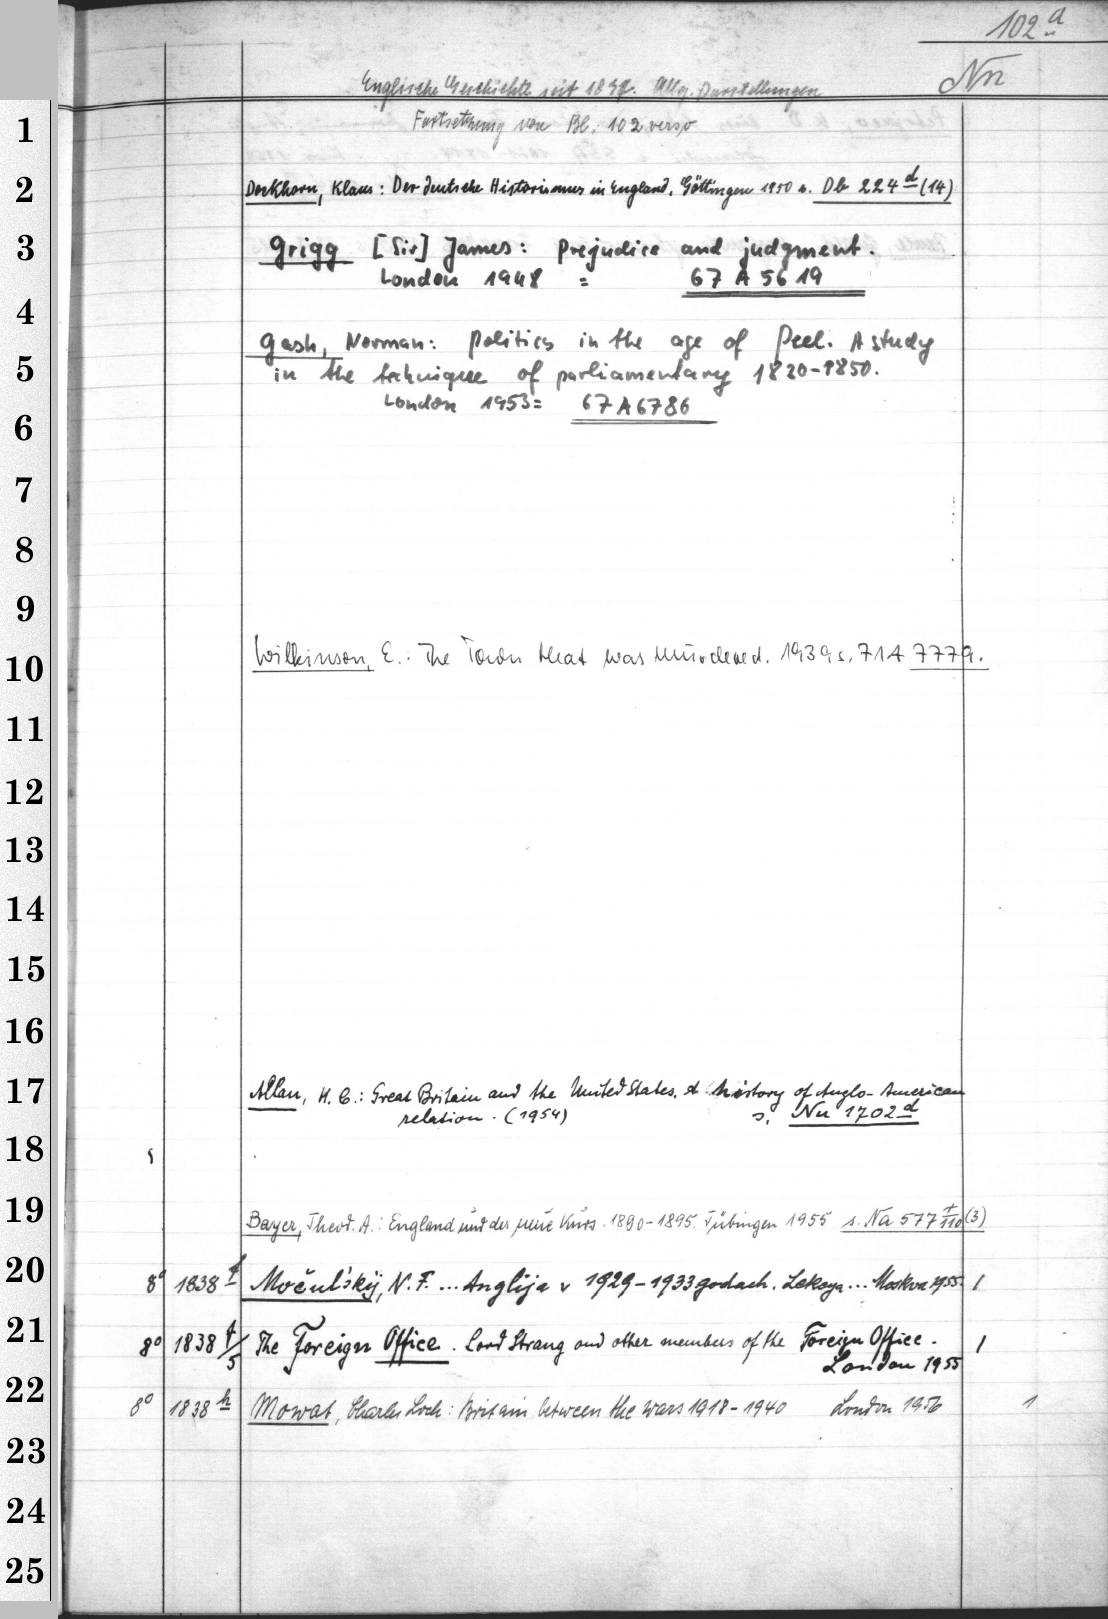 102 a
Englische Geschichte seit 1837. Allg. Darstellungen
Nn
1
Fortsetzung von Bl. 102 verso
2
Dockhorn, Klaus: Der deutsche Historismus in England. Göttingen 1950 s. Db 224 d (14)
3
Grigg [Sir] James: Prejudice and judgment.
London 1948 = 67 A 5619
4
Gash, Norman: Politics in the age of Peel. A study
5
in the technique of parliamentary 1820-1850.
London 1953= 67A6786
6
7
8
9
10
Wilkinson, E.: The Town that was murdered. 1939 s. 71A 7779.
11
12
13
14
15
16
17
Allan, H. C.: Great Britain and the United States. A history of Anglo-American
relation. (1954) s. Nn 1702 d
18
19
Bayer, Theod. A.: England und der neue Kurs. 1890-1895. Tübingen 1955 s. Na 577 f/110 (3)
20
8° 1838 f Močul'skij, N. F. ... Anglija v 1929-1933 godach. Lekcya ... Moskva 1955. 1
21
8° 1838 f/5 The Foreign Office. Lord Strang and other members of the Foreign Office. 1
London 1955
22
8° 1838 h Mowat, Charles Loch: Britain between the wars 1918-1940 London 1956 1
23
24
25